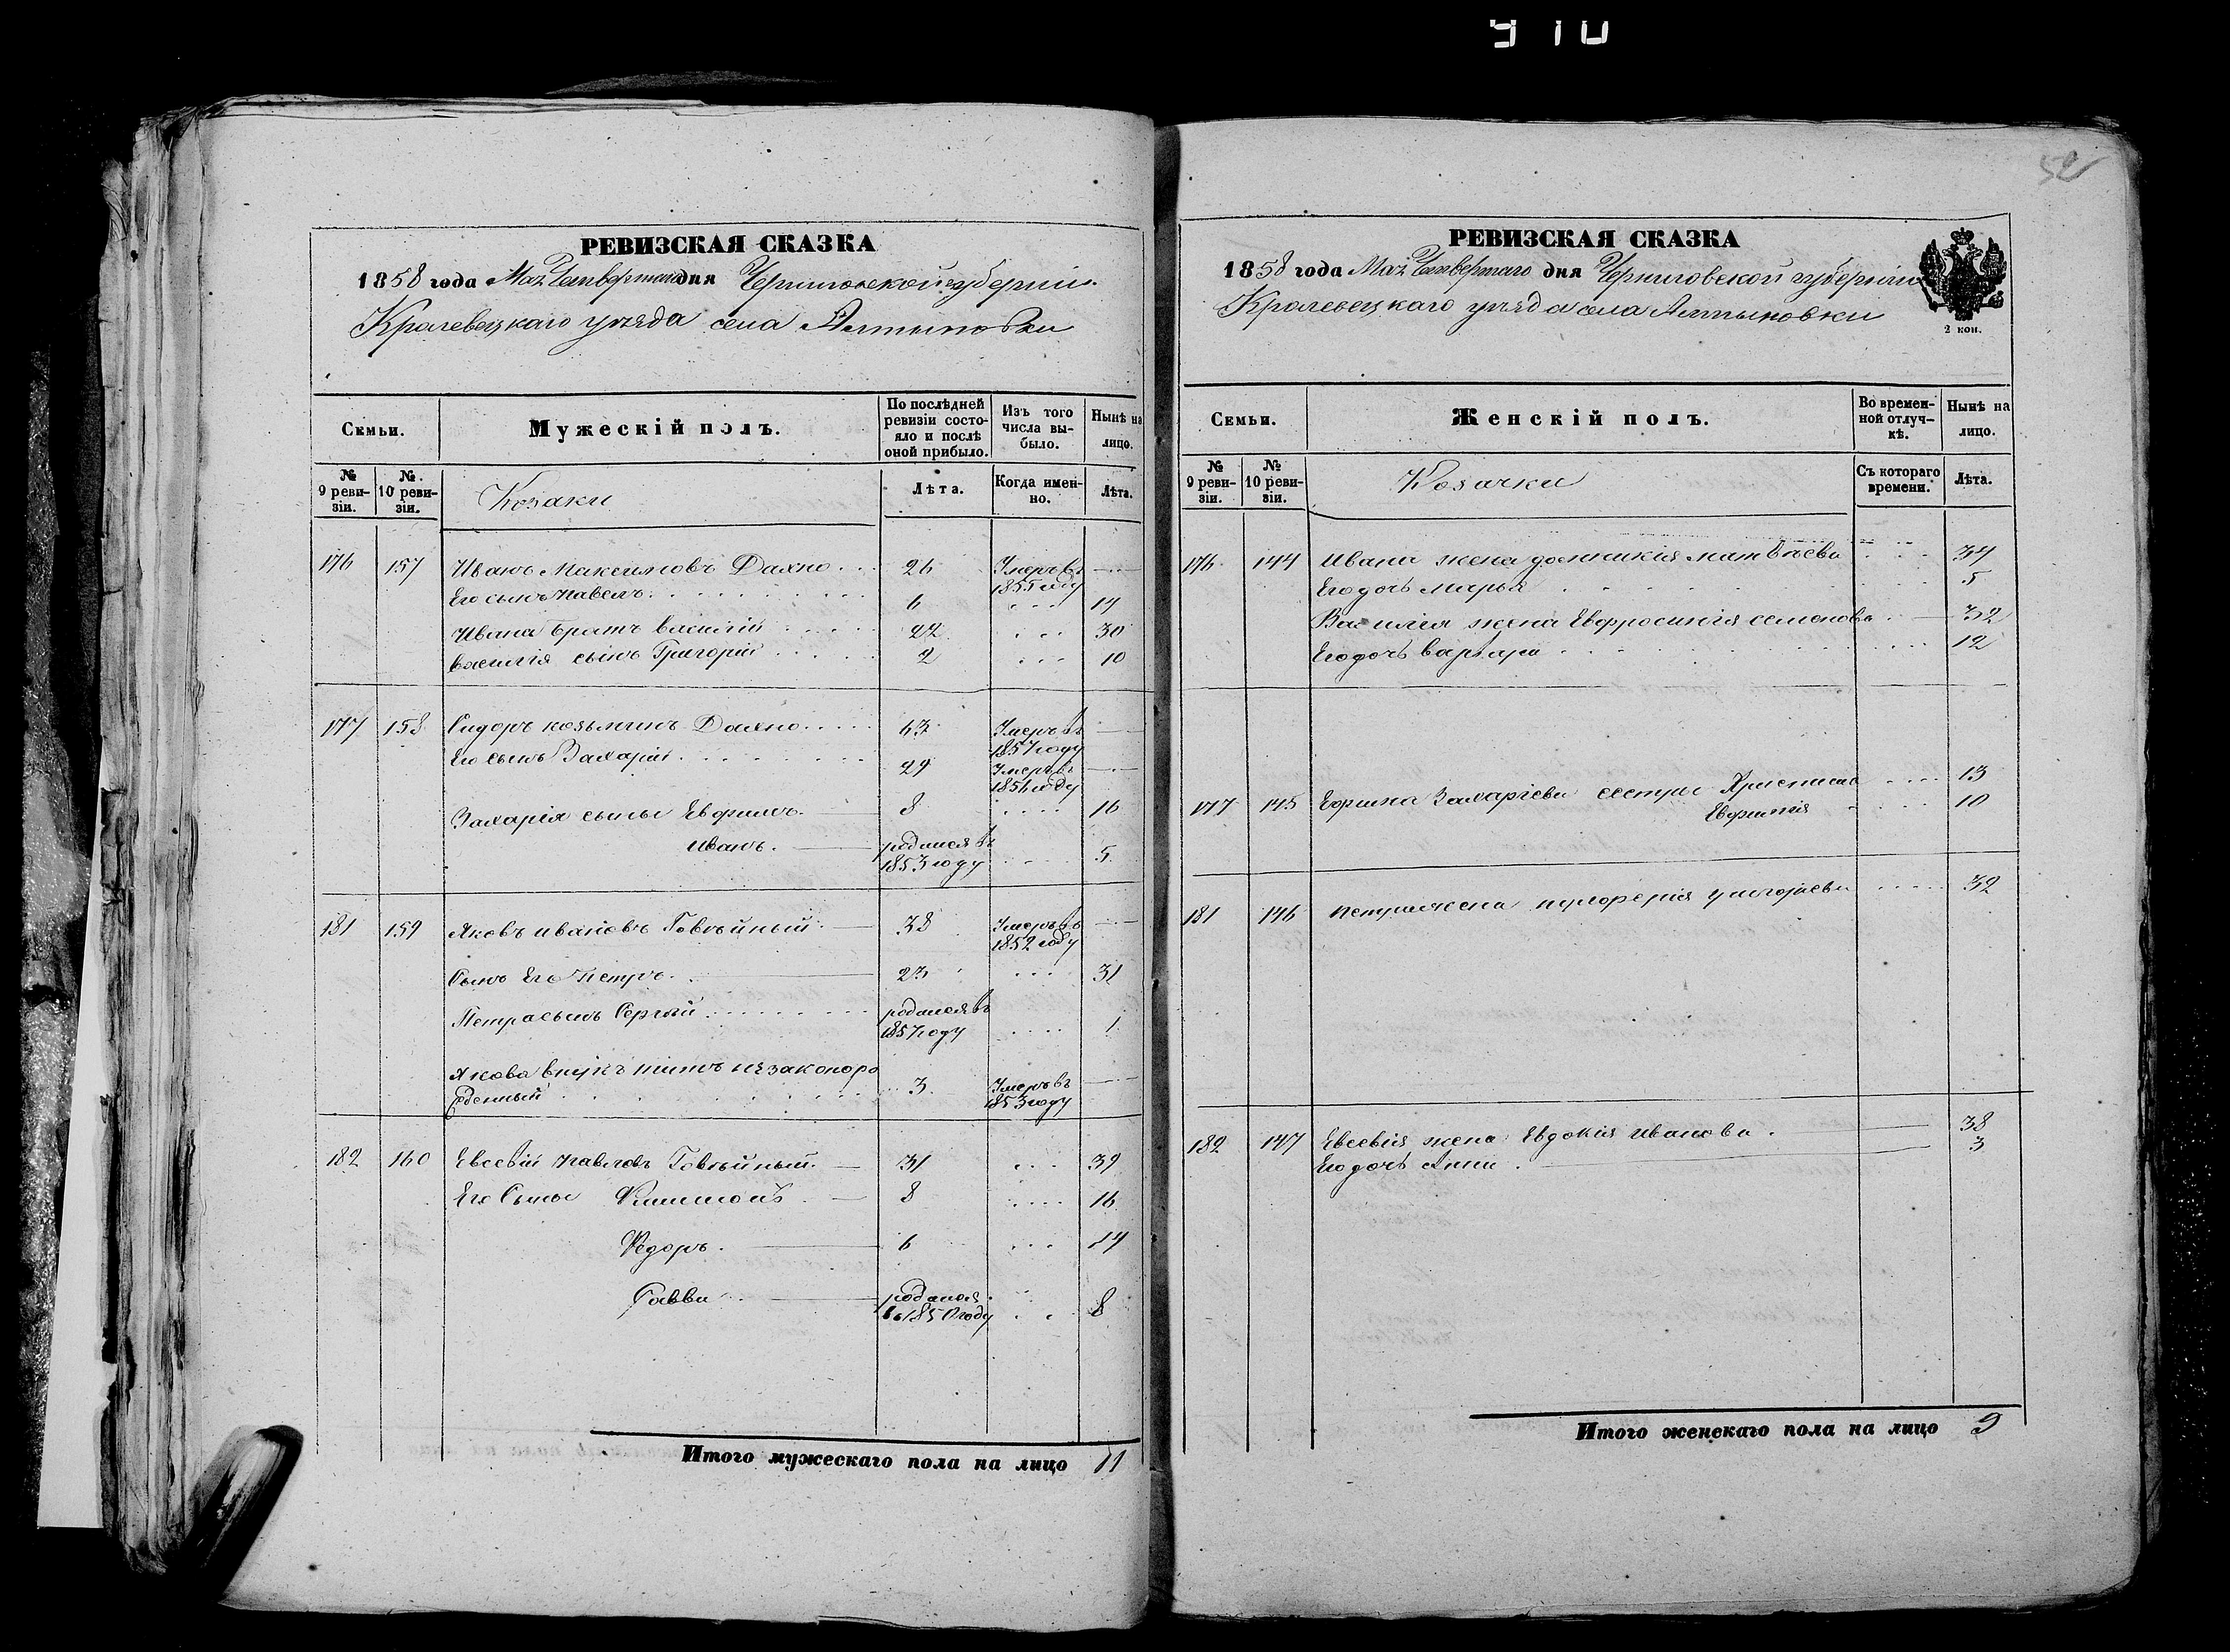 910
52
РЕВИЗСКАЯ СКАЗКА
1858 года Мая Четвертаго дня Черниговской губерніи
Кролевецкаго уѣзда села Алтыновки
Семьи.
Мужескій полъ.
По послѣдней ревизіи состояло и послѣ оной прибыло.
Изъ того числа выбыло.
Нынѣ на лицо.
№ 9 ревизіи.
№ 10 ревизіи.
Козаки
Лѣта.
Когда именно.
Лѣта.
176 157 Иванъ Максимовъ Дахно 26 Умеръ въ 1855 году
Его сынъ Павелъ 6 14
Ивана братъ Василій 22 30
Василія сынъ Григорій 2 10
177 158 Сидоръ Козьминъ Дахно 63 Умеръ въ 1857 году
Его сынъ Захарій 29 Умеръ въ 1856 году
Захарія сыны Ефимъ 8 16
Иванъ родился въ 1853 году 5
181 159 Яковъ Ивановъ Говѣйный 38 Умеръ въ 1852 году
Сынъ Его Петръ 23 31
Петра сынъ Сергѣй родился въ 1857 году 1
Якова внукъ Титъ незаконоро
жденный 3 Умеръ въ 1853 году
182 160 Евсевій Павловъ Говѣйный 31 39
Его Сыны Филимонъ 8 16
Федоръ 6 14
Савва родился въ 1850 году 8
Итого мужескаго пола на лицо 11
РЕВИЗСКАЯ СКАЗКА
1858 года Мая Четвертаго дня Черниговской губерніи
Кролевецкаго уѣзда села Алтыновки
2 коп.
Семьи.
Женскій полъ.
Во временной отлучкѣ.
Нынѣ на лицо.
№ 9 ревизіи.
№ 10 ревизіи.
Козачки
Съ котораго времени.
Лѣта.
176 144 Ивана жена Домникія Матвѣева 34
Его дочь Марья 5
Василія жена Евфросинія Семенова 32
Его дочь Варвара 12
177 145 Ефима Захаріева сестры Христина 13
Евфимія 10
181 146 Петра жена Григорьева 32
182 147 Евсевія жена Евдокія Иванова 38
Его дочь Анна 3
Итого женскаго пола на лицо 9